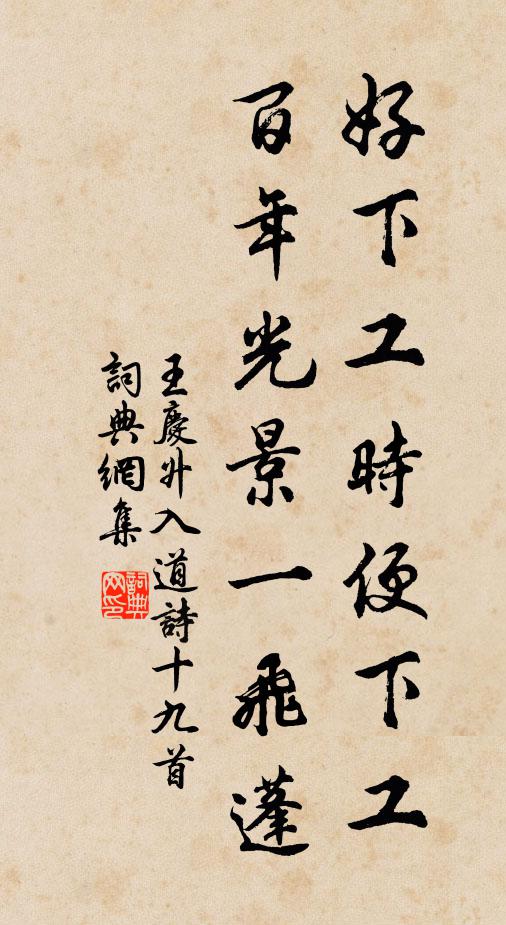 好下工時便下工
百年光景一飛蓬
王慶升入道詩十九首
詞典網集
詞典网印